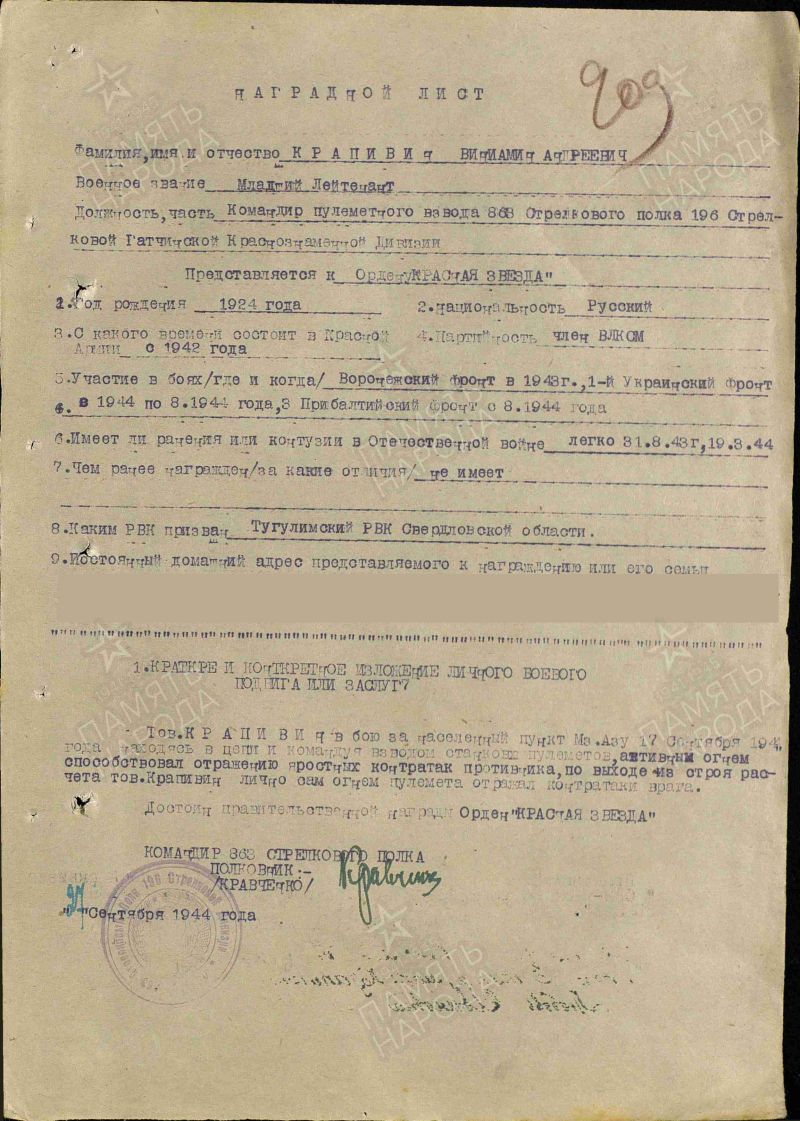 209
НАГРАДНОЙ ЛИСТ
Фамилия,имя и отчество К Р А П И В И Н ВИНИАМИН АНДРЕЕВИЧ
Военное звание Младший Лейтенант
Должность,часть Командир пулеметного взвода 863 Стрелкового полка 196 Стрел-
ковой Гатчинской Краснознаменной Дивизии
Представляется к Ордену"КРАСНАЯ ЗВЕЗДА"
1.Год рождения 1924 года 2.национальность Русский
3.С какого времени состоит в Красной 4.Партийность член ВЛКСМ
Армии с 1942 года
5.Участие в боях/где и когда/ Воронежский фронт в 1943г.,1-й Украинский Фронт
в 1944 по 8.1944 года,3 Прибалтийский фронт с 8.1944 года
6.Имеет ли ранения или контузии в Отечественной войне легко 31.8.43г,19.3.44
7.Чем ранее награжден/за какие отличия/ не имеет
8.Каким РВК призван Тугулимский РВК Свердловской области.
9.Постоянный домашний адрес представляемого к награждению или его семьи
1.КРАТКРЕ И КОНТКРЕТНОЕ ИЗЛОЖЕНИЕ ЛИЧНОГО БОЕВОГО
ПОДВИГА ИЛИ ЗАСЛУГ7
Тов.К Р А П И В И Н в бою за населенный пункт Мз.Азу 17 Сентября 194
года находясь в цепи и командуя взводом станковых пулеметов,активным огнем
способствовал отражению яростных контратак противника,по выходе из строя рас-
чета тов.Крапивин лично сам огнем пулемета отражал контратаки врага.
Достоин правительственной награды Орден"КРАСНАЯ ЗВЕЗДА"
КОМАНДИР 863 СТРЕЛКОВОГО ПОЛКА
ПОЛКОВНИК:-
/КРАВЧЕНКО/
"27"Сентября 1944 года
ПАМЯТЬ НАРОДА